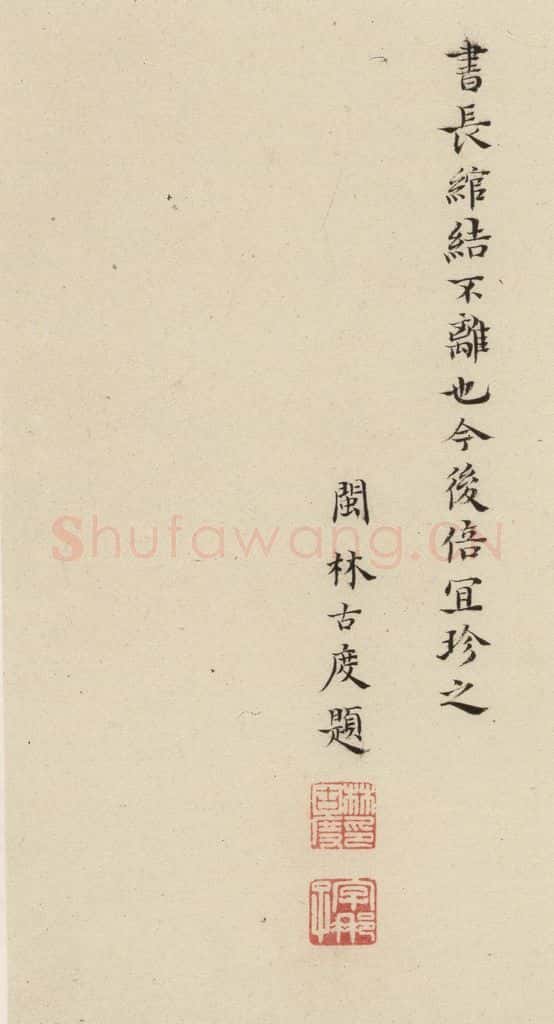 書長綰結不離也今後倍宜珍之
閩林古度題
林古度印
字那子
Shufawang.CN